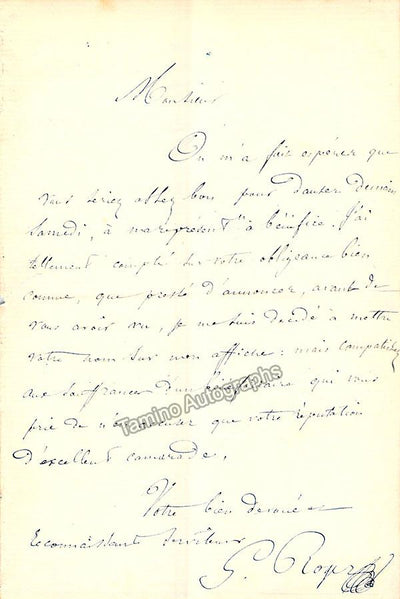 Monsieur
On m'a fait espérer que
vous seriez assez bon pour danser demain
Samedi, à ma représent^on à bénéfice. J'ai
tellement compté sur votre obligeance bien
connue, que pressé d'annoncer, avant de
vous avoir vu, je me suis décidé à mettre
votre nom sur mon affiche : mais compatissez
aux souffrances d'un qui vous
prie de n'accuser que votre réputation
d'excellent camarade.
Votre bien dévoué et
Reconnaissant serviteur
G. Roger
Tamino Autographs